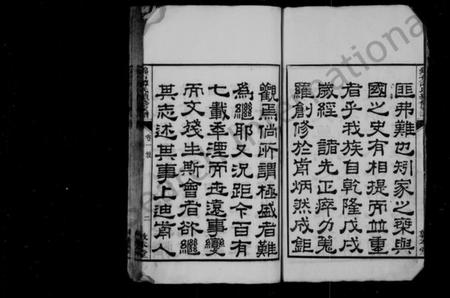 匪弗難也矧家之椉與
國之史有相提而並重
者乎我族自乾隆戊戌
歲經 諸先正瘁力蒐
羅創修於前炳然成鉅
觀焉倘所謂極盛者難
為繼耶又況距今百有
七載率湮而走遠事變
而文殘生斯會者欲繼
其志述其事上迪前人